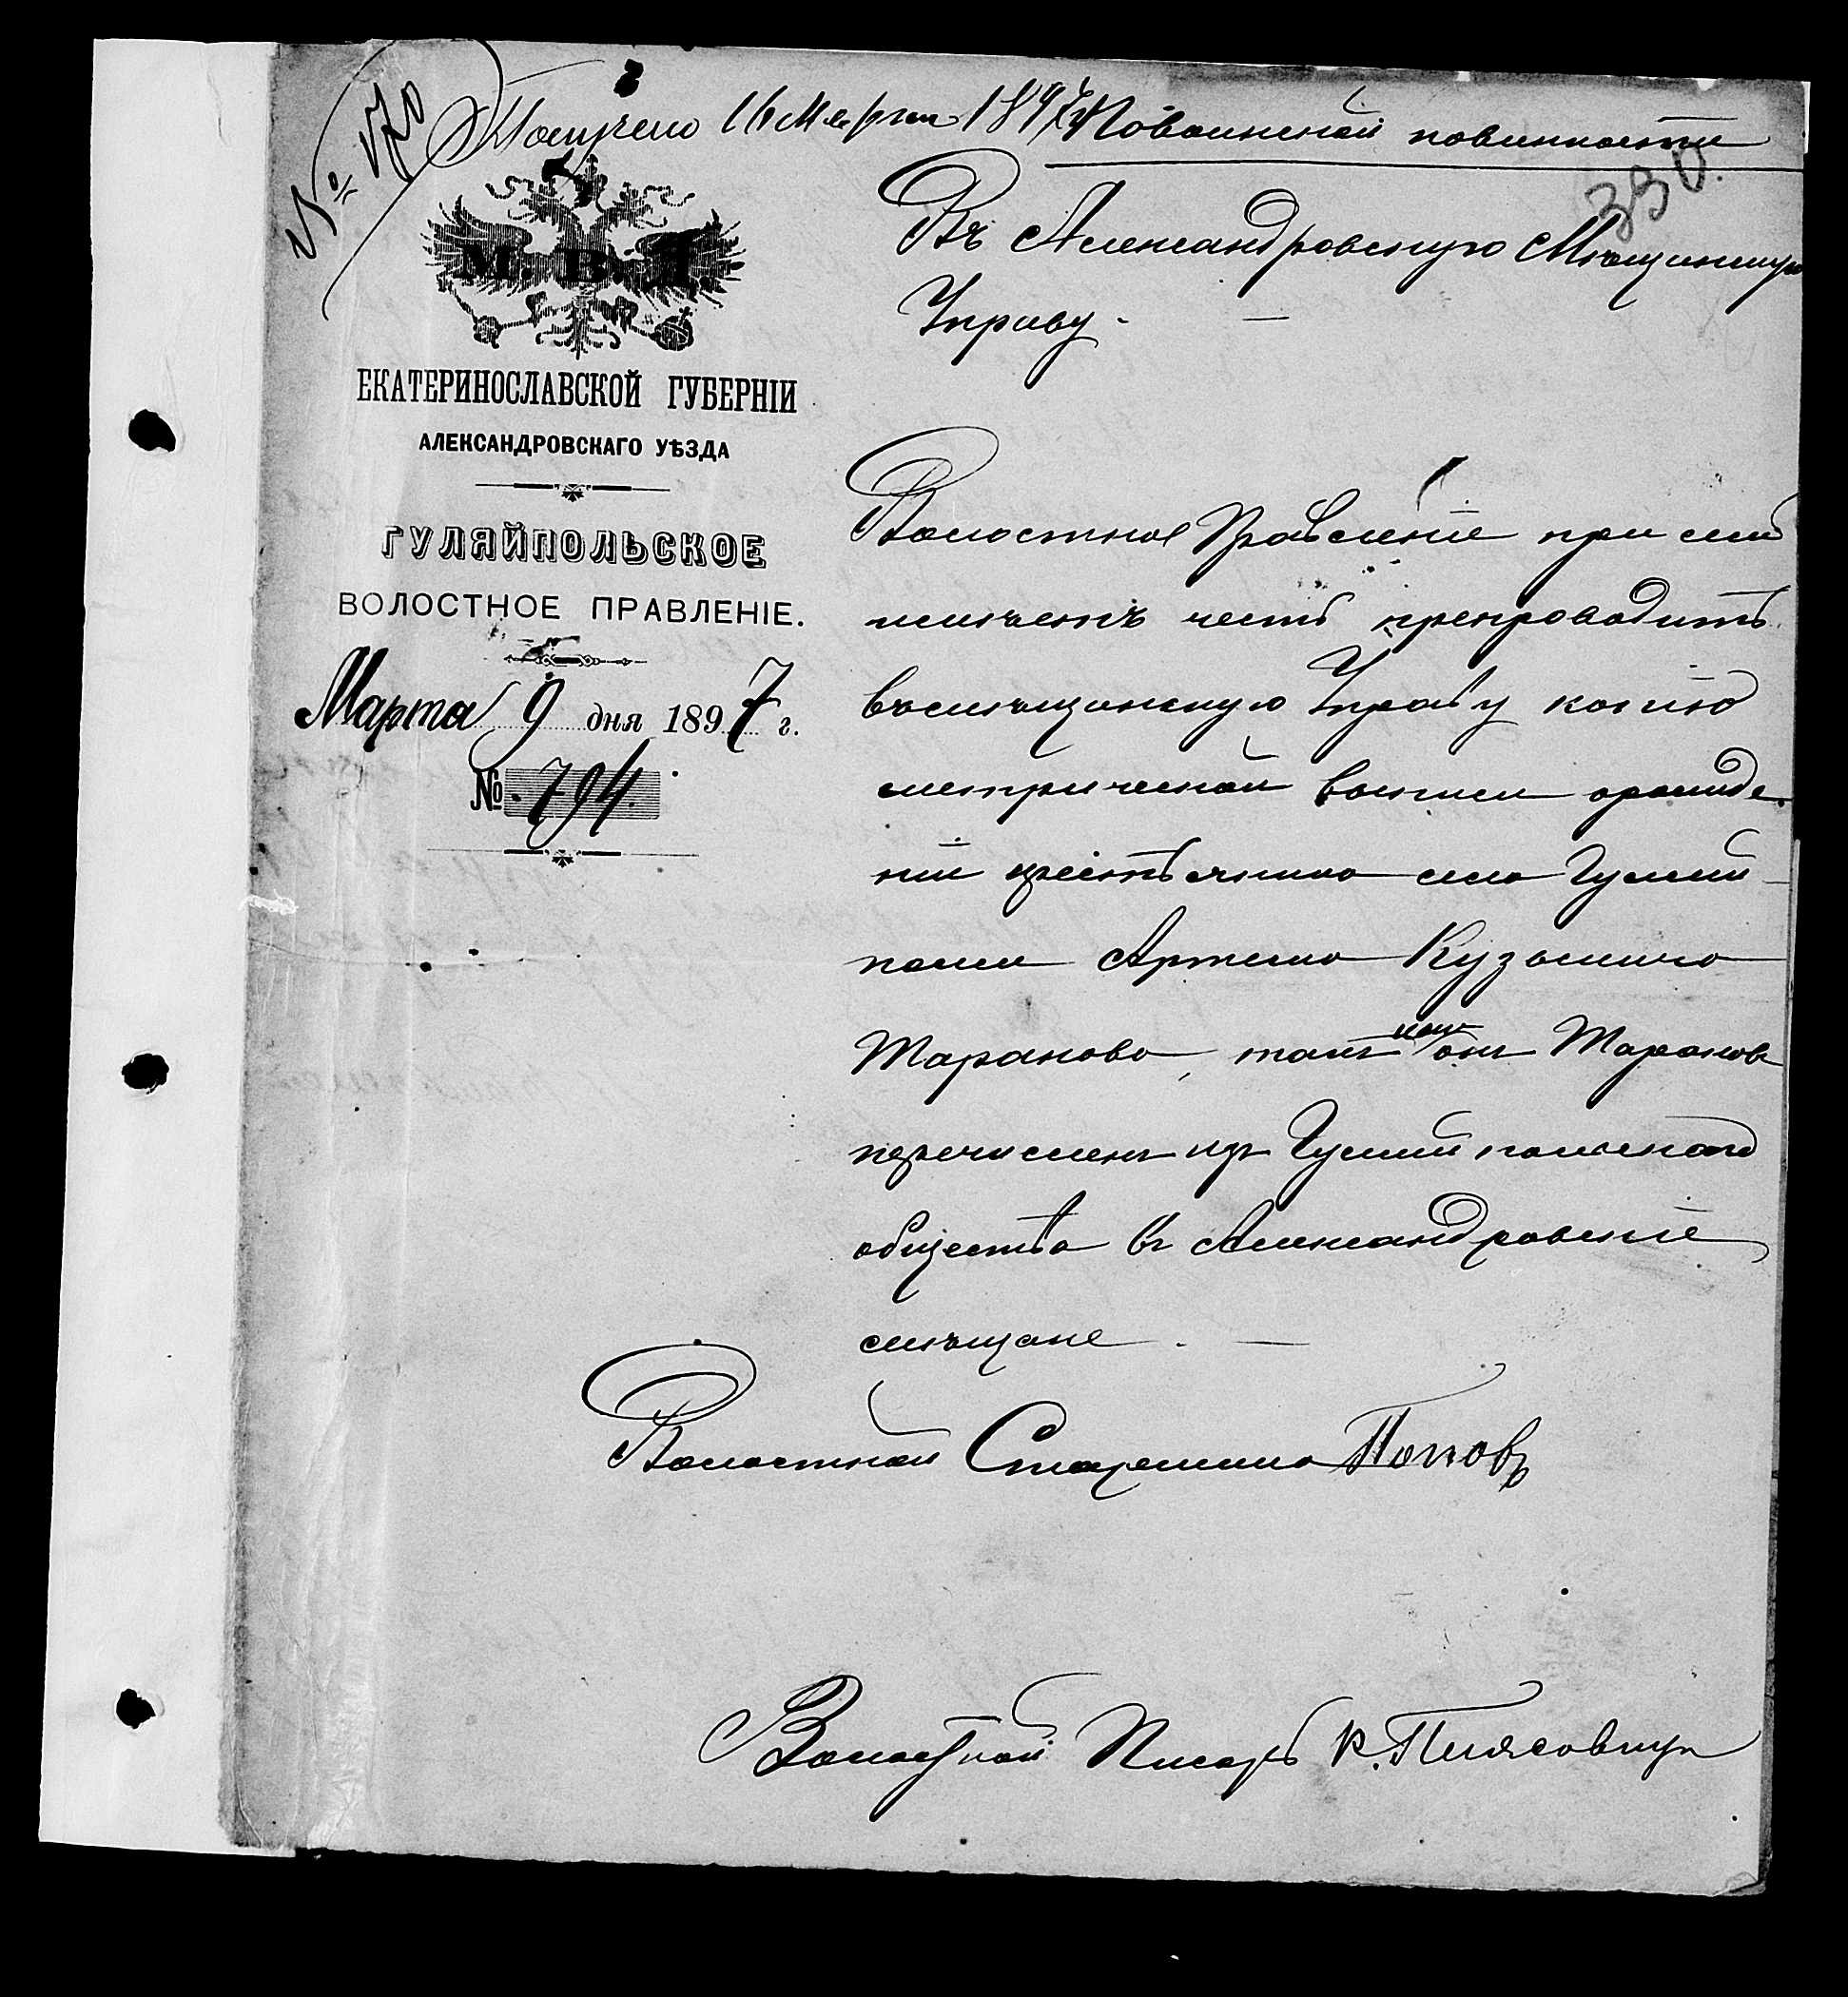 № 170
Получено 16 Марта 1897 г.
По воинской повинности
330.
Въ Александровскую Мѣщанскую
Управу.
М. В. Д.
ЕКАТЕРИНОСЛАВСКОЙ ГУБЕРНІИ
АЛЕКСАНДРОВСКАГО УѢЗДА
ГУЛЯЙПОЛЬСКОЕ
ВОЛОСТНОЕ ПРАВЛЕНІЕ.
Марта 9 дня 1897 г.
№ 794
Волостное Правленіе при семъ
имѣетъ честь препроводить
въ мѣщанскую Управу копію
метрической выписи о рожде
ніи крестьянина села Гуляй
поля Артема Кузьмина
Таранова, такъ какъ онъ Тарановъ
перечисленъ изъ Гуляйпольскаго
общества въ Александровскіе
мѣщане.
Волостной Старшина Поповъ
Волостной Писарь К.